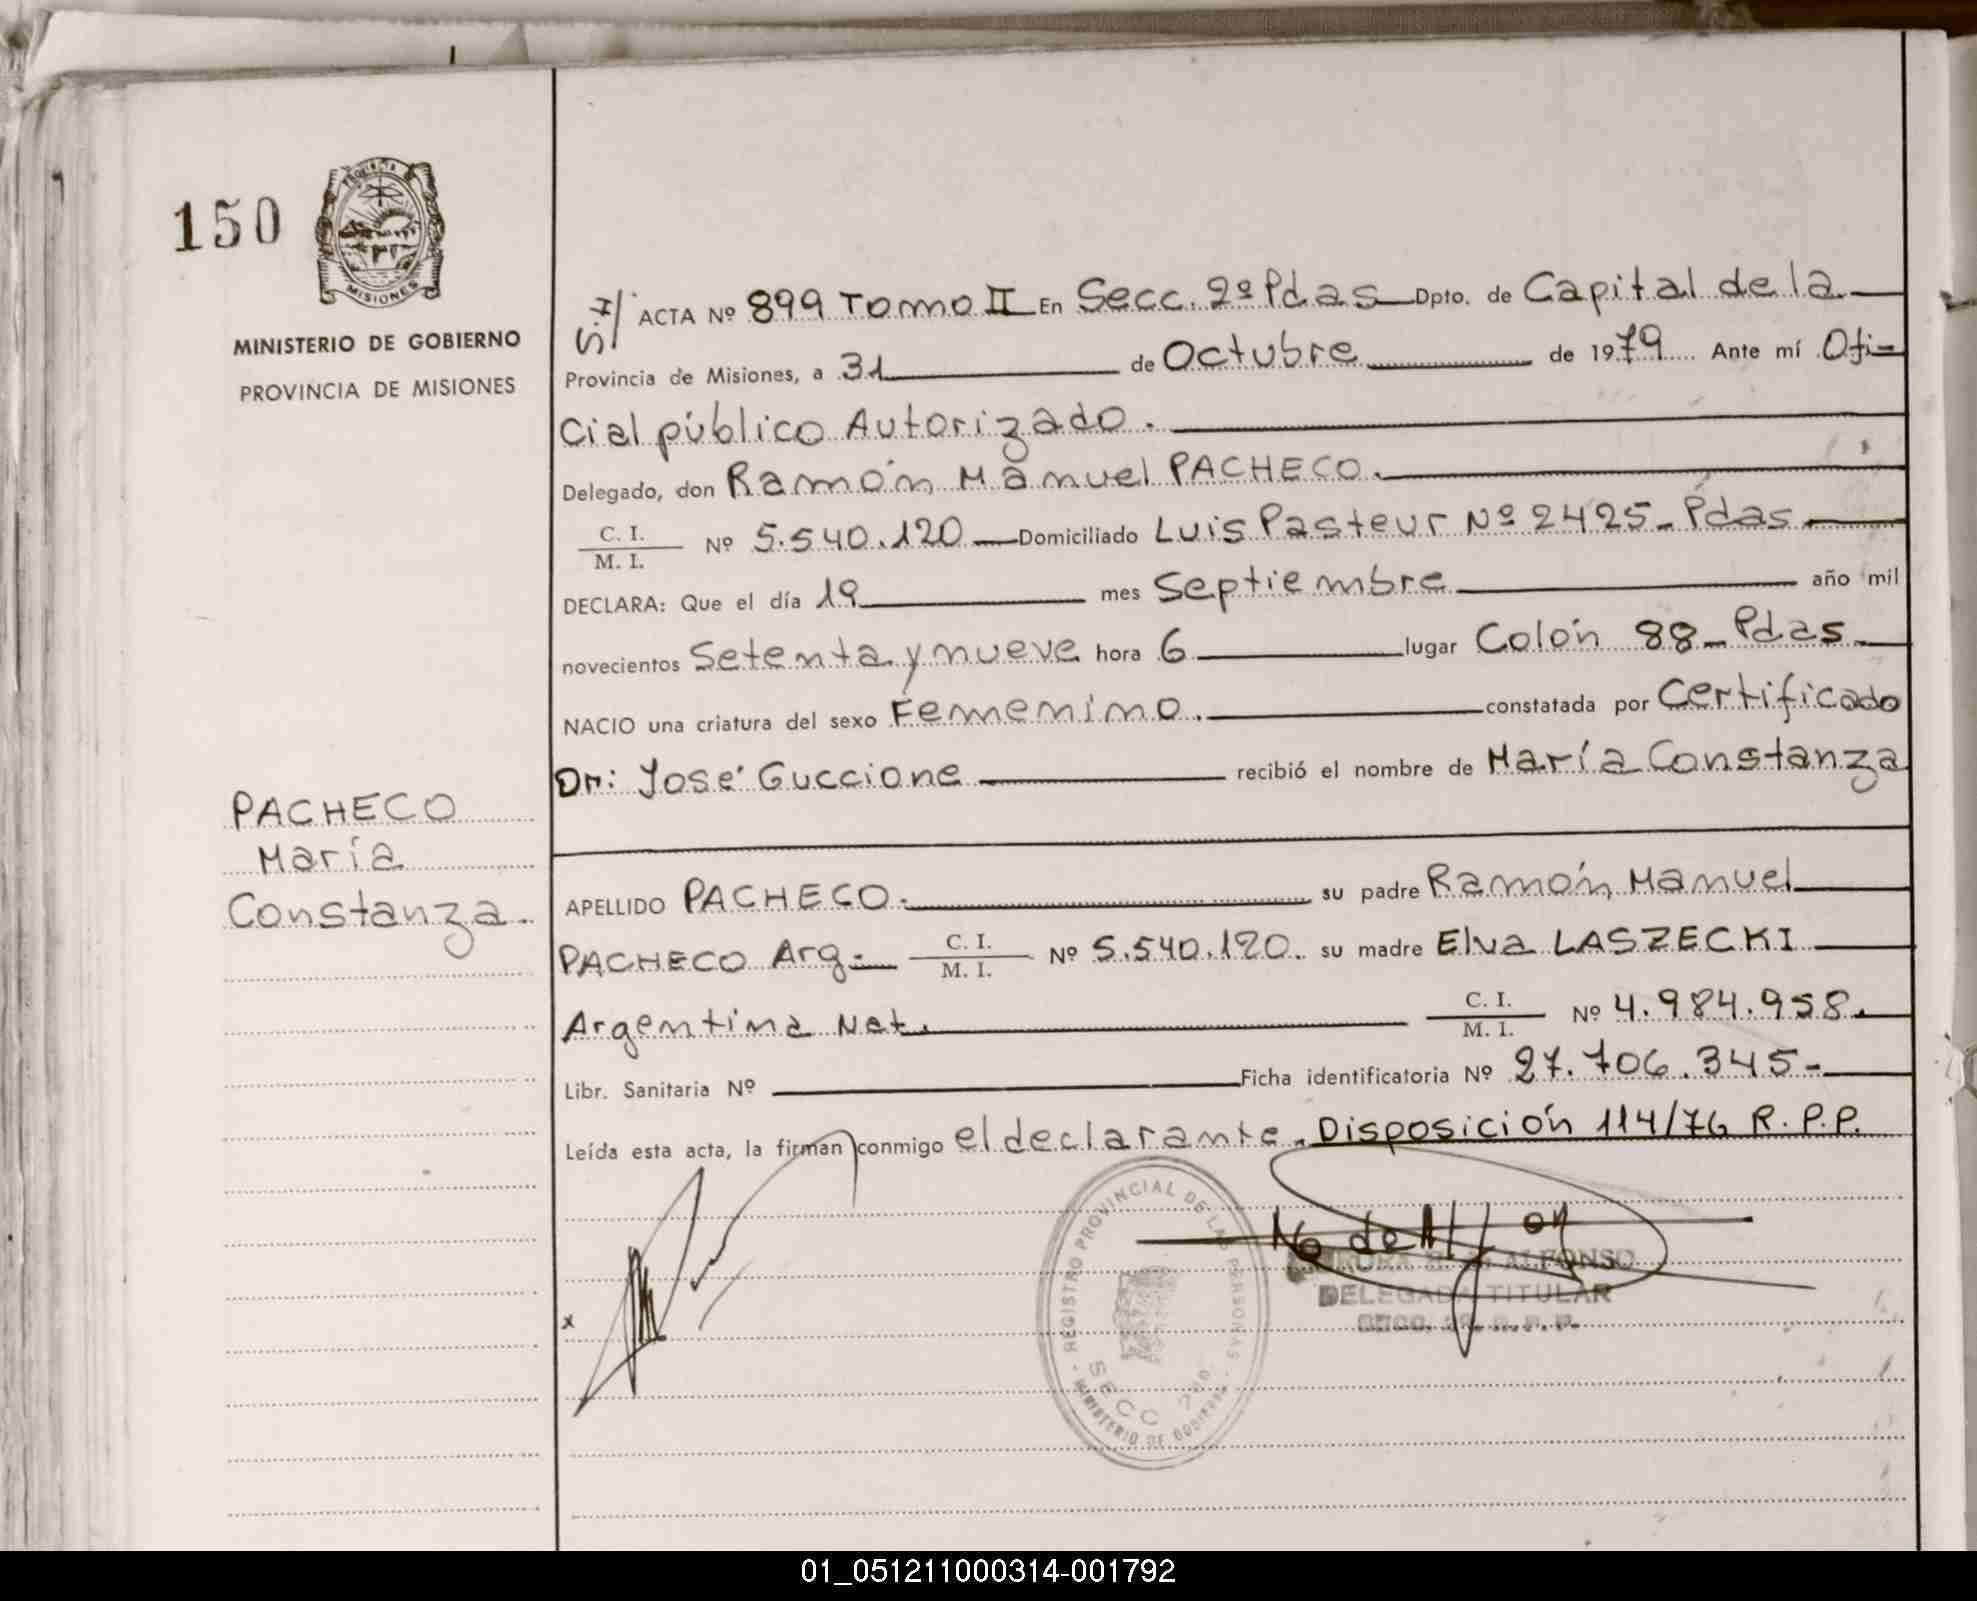 150
PROVINCIA
MISIONES
MINISTERIO DE GOBIERNO
PROVINCIA DE MISIONES
S.I/ ACTA Nº 899 Tomo II En Secc. 2º Pdas Dpto. de Capital de la
Provincia de Misiones, a 31 de Octubre de 1979 Ante mí Ofi-
cial público Autorizado.
Delegado, don Ramón Manuel PACHECO.
C. I.
M. I.
Nº 5.540.120 Domiciliado Luis Pasteur Nº 2425- Pdas.
DECLARA: Que el día 19 mes Septiembre año mil
novecientos Setenta y nueve hora 6 lugar Colón 88- Pdas.
NACIO una criatura del sexo Femenino. constatada por Certificado
Dr: José Guccione recibió el nombre de María Constanza
PACHECO
María
Constanza.
APELLIDO PACHECO. su padre Ramón Manuel
PACHECO Arg. C. I.
M. I. Nº 5.540.120. su madre Elva LASZECKI
Argentina Nat. C. I.
M. I. Nº 4.984.958.
Libr. Sanitaria Nº Ficha identificatoria Nº 27.706.345-
Leída esta acta, la firman conmigo el declarante. Disposición 114/76 R.P.P.
REGISTRO PROVINCIAL DE LAS PERSONAS
SECC 2da
MINISTERIO DE GOBIERNO
ALFONSO
DELEGADA TITULAR
SECC. 2ª R. P. P.
x
01_051211000314-001792